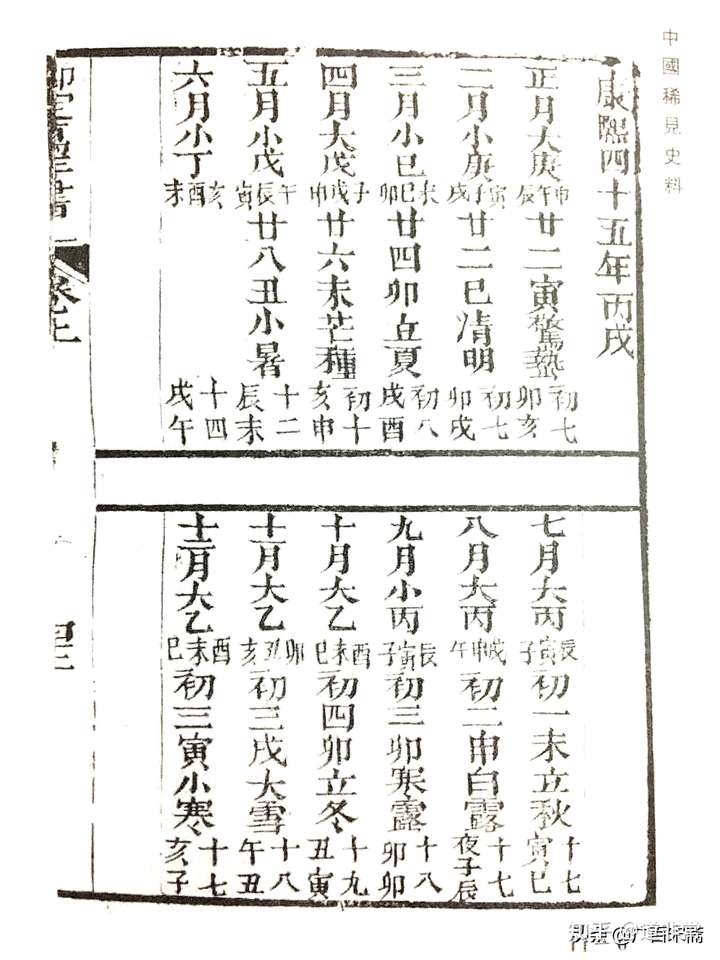 中國稀見史料
康熙四十五年丙戌
正月大庚申午辰廿二寅驚蟄初七卯亥
二月小庚寅子戌廿二巳清明初七卯戌
三月小己未巳卯廿四卯立夏初八戌酉
四月大戊子戌申廿六未芒種初十亥申
五月小戊午辰寅廿八丑小暑十二辰未
六月小丁亥酉未十四戌午
七月大丙辰寅子初一未立秋十七寅巳
八月大丙戌申午初二申白露十七夜子辰
九月小丙辰寅子初三卯寒露十八卯卯
十月大乙酉未巳初四卯立冬十九丑寅
十一月大乙卯丑亥初三戌大雪十八午丑
十二月大乙酉未巳初三寅小寒十七亥子